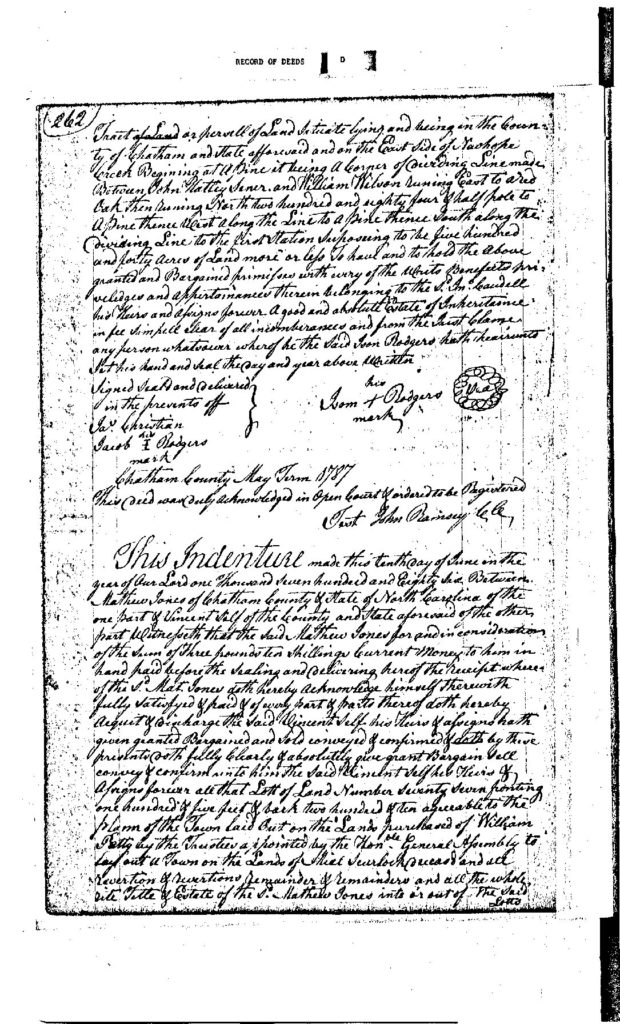 RECORD OF DEEDS D
262
Tract of Land or persell of Land Situate lying and being in the Coun-
ty of Chatham and State afforesaid and on the East Side of
Creek Begining at A Pine it being A Corner of Dividing Line made
Between John Sener. and William Wilson Runing East to a Red
Oak then Runing North two hundred and eighty four & half pole to
A Pine thence West along the Line to a Pine thence South along the
Dividing Line to the first Station Suposing to be five hundred
and forty Acres of Land more or less To have and to hold the Above
granted and Bargained primises with every of the Benefeits pri-
veledges and appertainances therein belonging to the Sd. Jno. Caudell
his Heirs and asigns forever A good and absolute Estate of Inheritance
in fee Simpell Clear of all incomberances and from the Claime
any person whatsoever whereof he the Said Isom Rodgers hath heairunto
Set his hand and seal the Day and year above Written
Signed Seald and Delivered
in the presents off
Jas. Christian
Jacob his I Rodgers
mark
his
Isom + Rodgers
mark
Seal
Chatham County May Term 1787
This Deed was duly acknowledged in Open Court & ordered to be Registered
Test John Ramsey CC
This Indenture made this tenth day of June in the
year of Our Lord one Thousand seven hundred and Eighty Six Between
Mathew Jones of Chatham County & State of North Carolina of the
one Part & Vincent Self of the County and State aforesaid of the other
part Witnesseth that the Said Mathew Jones for and in consideration
of the Sum of Three pounds ten Shillings Current Money to him in
hand paid before the Sealing and Delivering hereof the receipt where-
of the Sd. Mat. Jones doth hereby Acknowledge himself therewith
fully Satisfyed & paid & of every part & parts thereof doth hereby
Acquet & Discharge the Said Vincent Self his Heirs & assigns hath
given granted Bargained and Sold conveyed & confirmed & doth by these
presents doth fully Clearly & absolutely give grant Bargain Sell
convey & confirm unto him the Said Vincent Self his Heirs &
Assigns forever all that Lott of Land Number Seventy Seven fronting
one hundred & five feet & back two hundred & ten agreeable to the
plann of the Town laid Out on the Lands purchased of William
Petty by the Trustees apointed by the Honble General Assembly to
lay out a Town on the Lands of Mial Scurlock Deceasd and all
revertion & revertions Remainder & remainders and all the whole
rite Title & Estate of the Sd. Mathew Jones into or out of the Said
Lotts